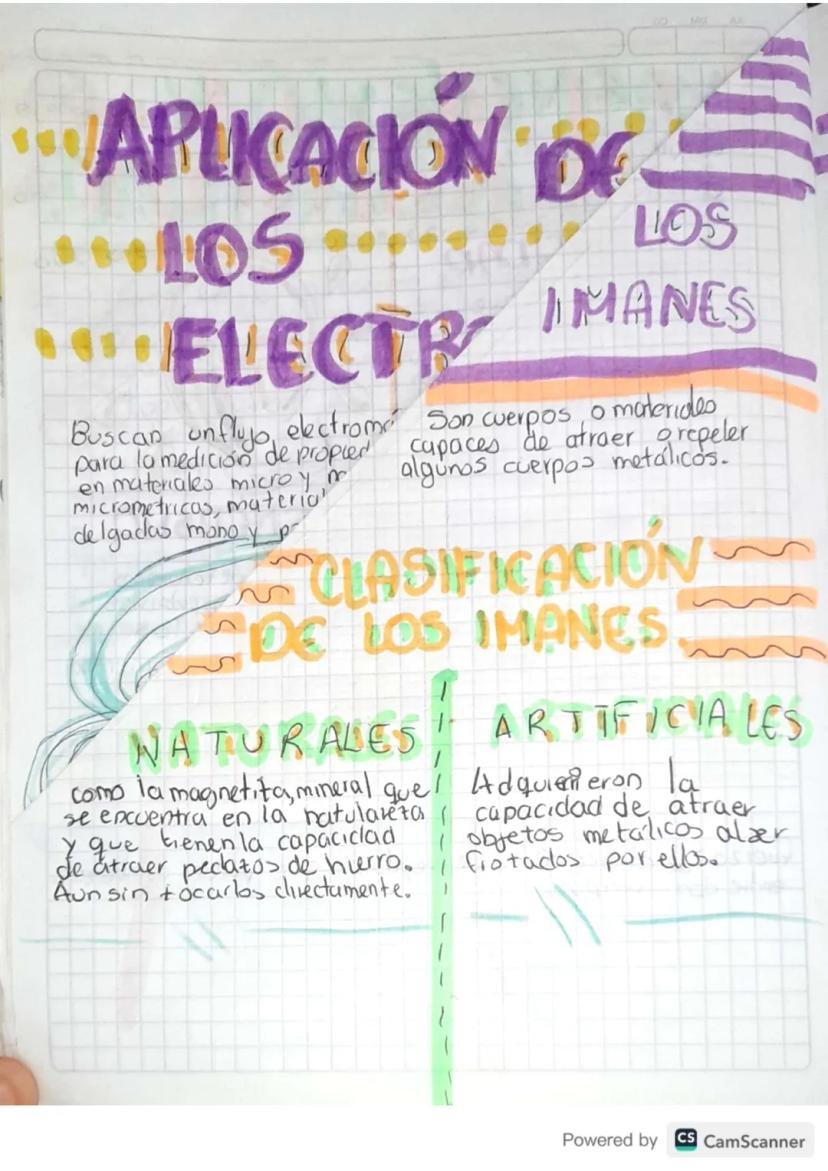 APLICACIÓN DE
LOS
ELECTR
Buscan un flujo electroma
para la medición de propied
en materiales micro y m
micrometricas, material
delgadas mono y p
LOS
IMANES
Son cuerpos o materiales
capaces de atraer o repeler
algunos cuerpos metálicos.
CLASIFICACIÓN
DE LOS IMANES.
NATURALES
como la magnetita, mineral que
se encuentra en la natulareza
y que tienen la capacidad
de atraer pedazos de hierro.
Aun sin tocarlos directamente.
ARTIFICIALES
Adquirieron la
capacidad de atraer
objetos metálicos al ser
frotados por ellos.
Powered by CS CamScanner